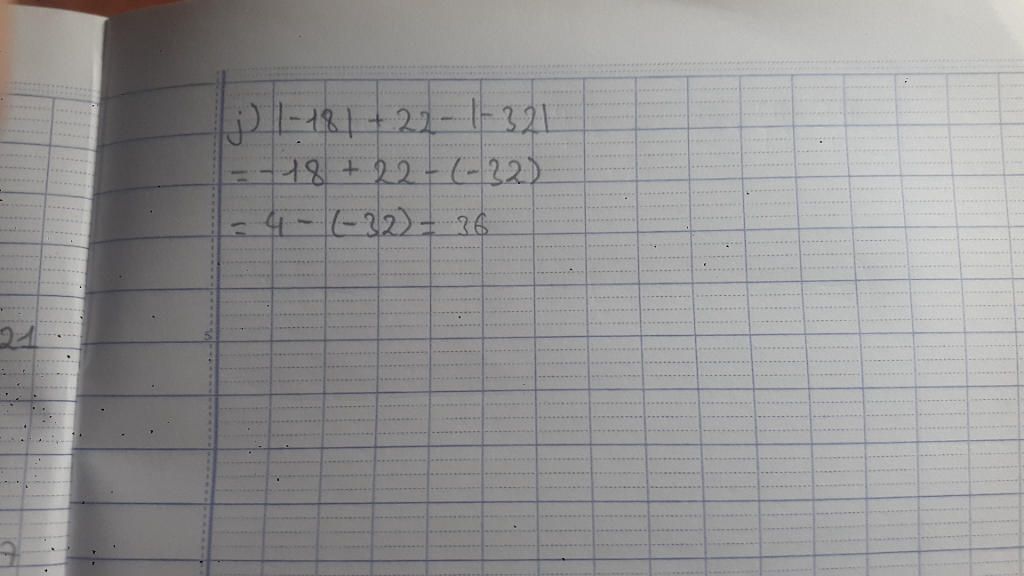 j) |-18| + 22 - |-32|
= -18 + 22 - (-32)
= 4 - (-32) = 36
21
7